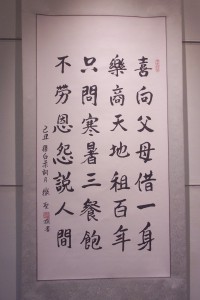 喜向父母借一身
樂高天地租百年
只問寒暑三餐飽
不勞恩怨說人間
己丑